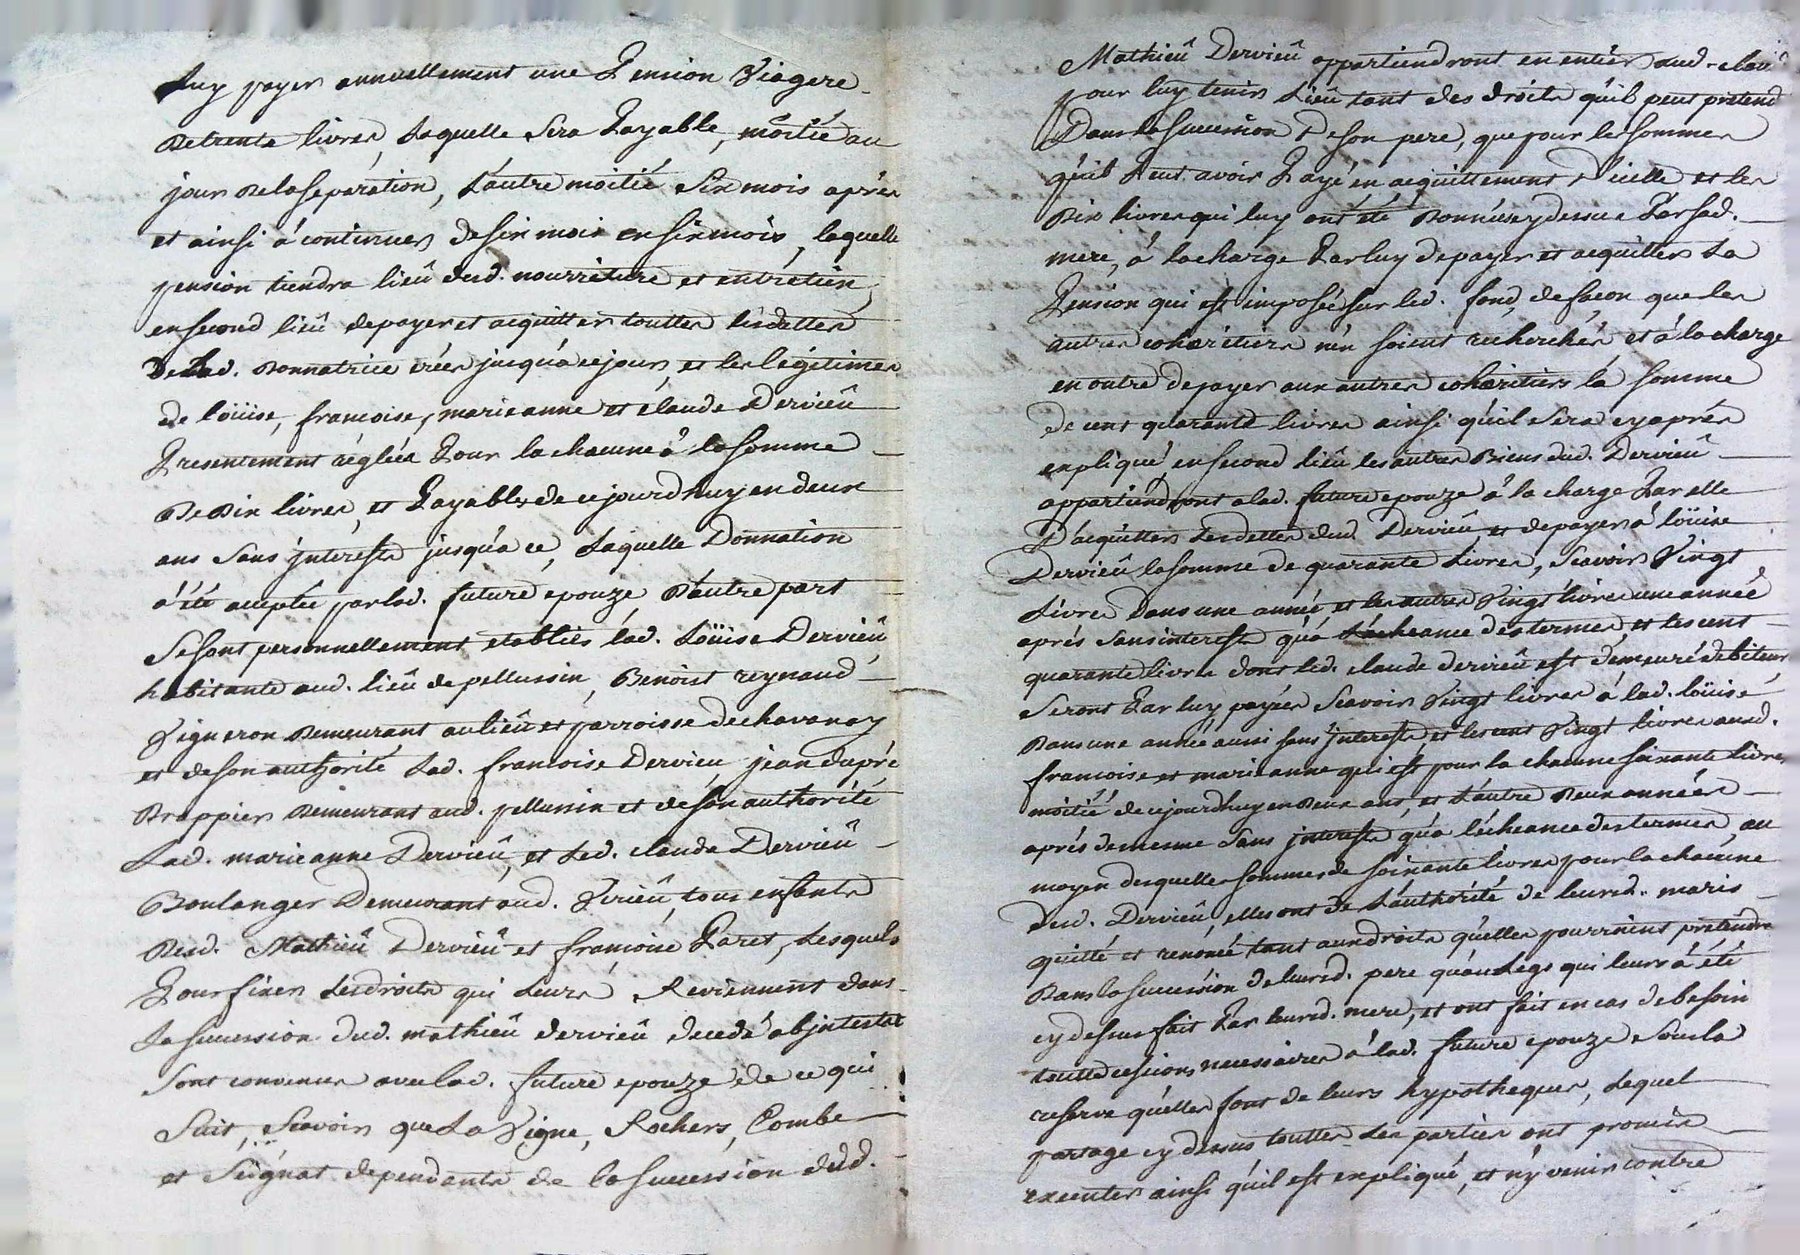 luy payer annuellement une Pension Viagere
De trente livres, Laquelle Sera Payable, moitié au
jour De la Separation, L'autre moitié Six mois aprés
et ainsi á continuer de six mois en six mois, laquelle
pension tiendra lieû dud. nourriture et entrétien,
en second lieû de payer et acquitter touttes les dettes
De Lad. Donnatrice crées jusqu'a ce jour et les légitimes
de loüise, francoise, marieanne et claude Dervieû
Presentement réglées Pour la chacune á la somme
De Dix livres, et Payables de ce jourd'huy en deux
ans Sans jnterests jusqu'a ce, Laquelle Donnation
á été acceptée par lad. future epouze D'autre part
Se sont personnellement etablies lad. Loüise Dervieû
habitante aud. lieû de pellussin, Benoist reynaud
Vigneron Demeurant au lieû et parroisse de chavanay
et de son authorité Lad. francoise Dervieu jean dupré
Drappier Demeurant aud. pellussin et de son authorité
Lad. marieanne Dervieû, et Led. claude Dervieû
Boulanger Demeurant aud. Virieû, tous enfants
Desd. Mathieû Dervieû et francoise Paret, Lesquels
Pour fixer Les droits qui Leurs Reviennent dans
La succession dud. mathieû dervieû decedé abjntestat
Sont convenus avec lad. future epouze de ce qui
Suit, Scavoir que La Vigne, Rochers, Combe
et Seignat dependants de la succession dud.
Mathieû Dervieû appartiendront en entier aud. claude
pour luy tenir Lieû tant des droits qu'il peut pretend
Dans la succession De son pere, que pour les sommes
qu'il Peut avoir Payé en acquittement D'icelle et les
Dix livres qui luy ont été Donnés cy dessus Par sad.
mere, á la charge Par luy de payer et acquitter La
Pension qui est imposée sur led. fond, de facon que les
autres cohéritiers n'en soient recherchés et á la charge
en outre de payer aux autres cohéritiers la somme
de cent quarante livres ainsi qu'il Sera cy aprés
expliqué en second lieû les autres Biens dud. Dervieû
appartiendront a lad. future epouze á la charge Par elle
D'acquitter Les dettes dud. Dervieû, et de payer á loüise
Dervieû la somme de quarante Livres, Scavoir Vingt
Livres Dans une année et les autres Vingt livres une année
aprés Sans interests qu'a L'echeance des termes, et les cent
quarante livres dont led. claude dervieû est demeuré debiteur
Seront Par luy payées Scavoir Vingt livres á lad. loüise
Dans une année aussi sans jnterests et les cent Vingt livres auxd.
francoise et marieanne qui est pour la chacune soixante livres
moitié de ce jourd'huy en Deux ans, et L'autre Deux années
aprés de mesme Sans jnterests qu'a l'écheance des termes, au
moyen desquelles sommes de soixante livres pour la chacune
dud. Dervieû, elles ont de L'authorité de leursd. maris
quitté et renoncé tant aux droits qu'elles pourroient prétendre
Dans la succession de leurd. pere qu'au Legs qui leurs á été
cy dessus fait Par leurd. mere, et ont fait en cas de besoin
toutte cessions necessaires á lad. future epouze Sous la
reserve qu'elles font de leurs hypotheques, Lequel
partage cy dessus touttes Les parties ont promis
executer ainsi qu'il est expliqué, et n'y venir contre